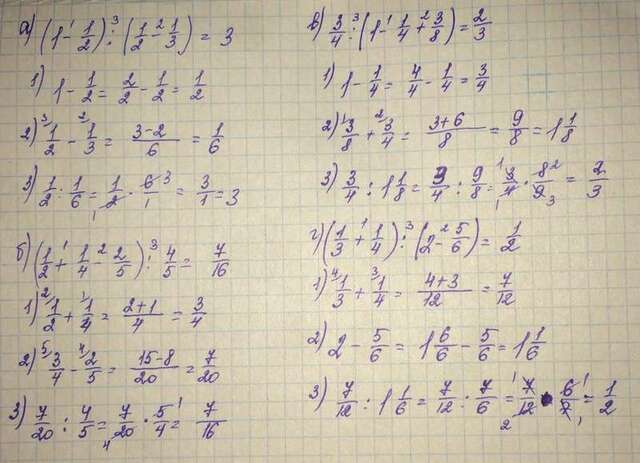 а) (1 - 1/2) : (1/2 - 1/3) = 3
1) 1 - 1/2 = 2/2 - 1/2 = 1/2
2) 1/2 - 1/3 = (3-2)/6 = 1/6
3) 1/2 : 1/6 = 1/2 · 6/1 = 3/1 = 3
б) (1/2 + 1/4 - 2/5) : 4/5 = 7/16
1) 1/2 + 1/4 = (2+1)/4 = 3/4
2) 3/4 - 2/5 = (15-8)/20 = 7/20
3) 7/20 : 4/5 = 7/20 · 5/4 = 7/16
в) 3/4 : (1 - 1/4 + 3/8) = 2/3
1) 1 - 1/4 = 4/4 - 1/4 = 3/4
2) 3/8 + 3/4 = (3+6)/8 = 9/8 = 1 1/8
3) 3/4 : 1 1/8 = 3/4 : 9/8 = 3/4 · 8/9 = 2/3
г) (1/3 + 1/4) : (2 - 5/6) = 1/2
1) 1/3 + 1/4 = (4+3)/12 = 7/12
2) 2 - 5/6 = 1 6/6 - 5/6 = 1 1/6
3) 7/12 : 1 1/6 = 7/12 : 7/6 = 7/12 · 6/7 = 1/2